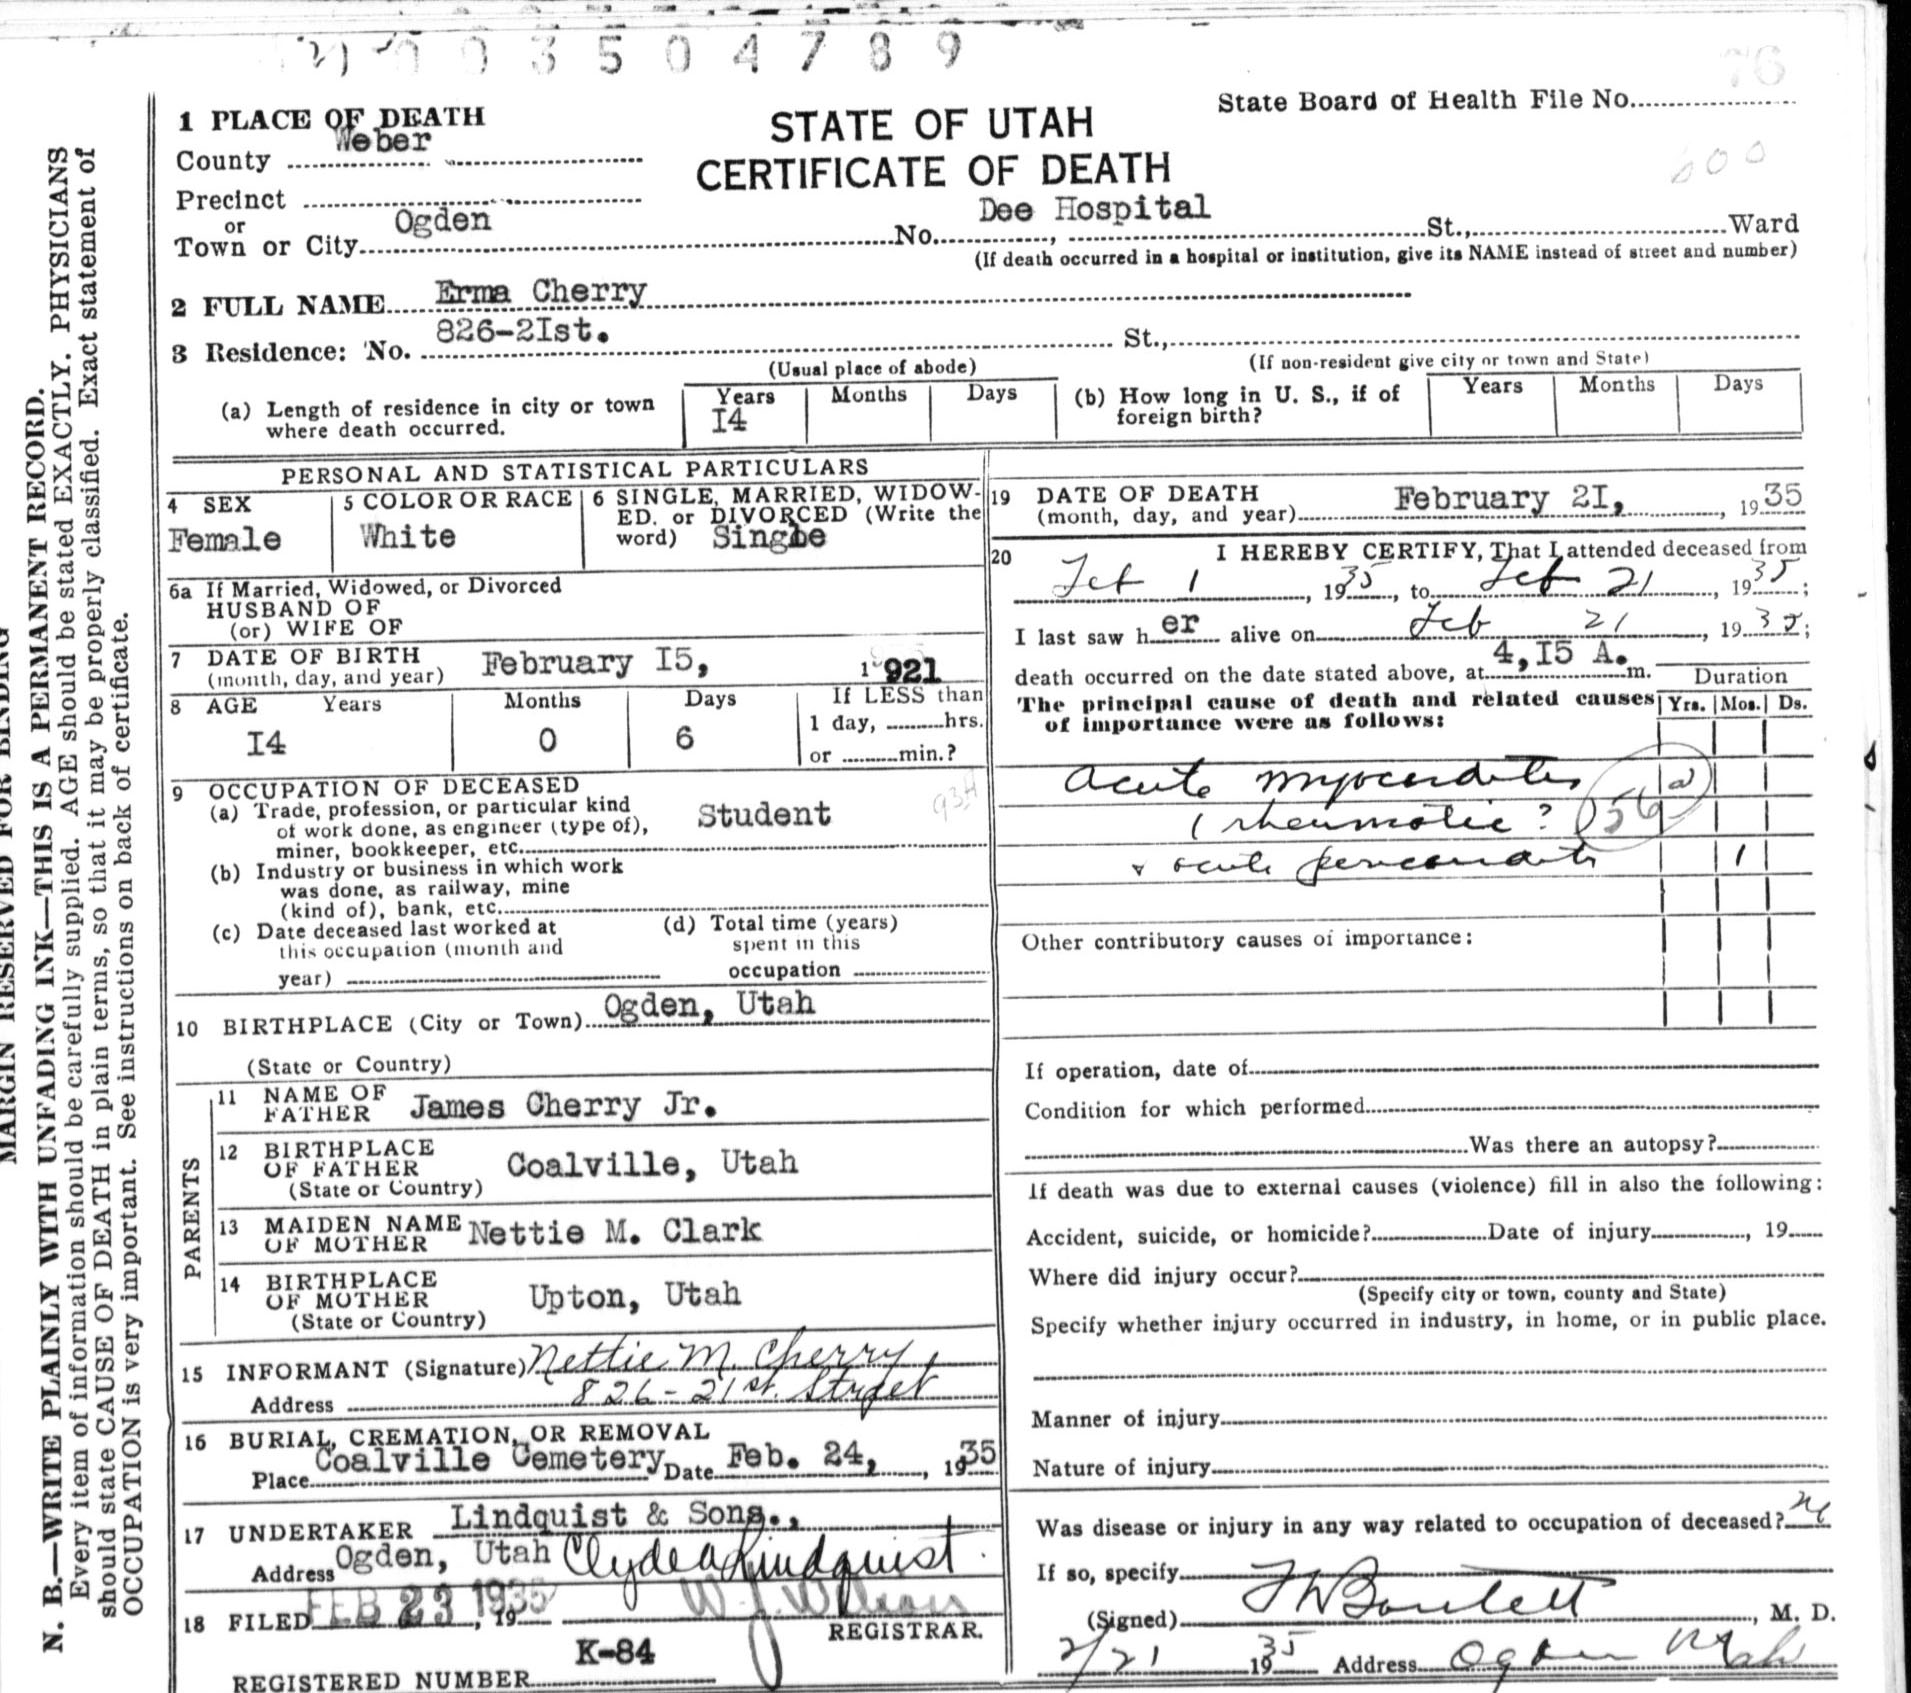 3504789
76
600
1 PLACE OF DEATH
County Weber
Precinct
or
Town or City Ogden
STATE OF UTAH
CERTIFICATE OF DEATH
State Board of Health File No.
Dee Hospital
No. , St., Ward
(If death occurred in a hospital or institution, give its NAME instead of street and number)
2 FULL NAME Erma Cherry
3 Residence: No. 826-2Ist. St.,
(Usual place of abode) (If non-resident give city or town and State)
(a) Length of residence in city or town where death occurred. Years I4 Months Days
(b) How long in U. S., if of foreign birth? Years Months Days
PERSONAL AND STATISTICAL PARTICULARS
4 SEX
Female
5 COLOR OR RACE
White
6 SINGLE, MARRIED, WIDOW-
ED. or DIVORCED (Write the
word) Single
6a If Married, Widowed, or Divorced
HUSBAND OF
(or) WIFE OF
7 DATE OF BIRTH
(month, day, and year) February I5, 1921
8 AGE Years Months Days If LESS than
I4 0 6 1 day, hrs.
or min.?
9 OCCUPATION OF DECEASED
(a) Trade, profession, or particular kind
of work done, as engineer (type of), Student
miner, bookkeeper, etc.
93A
(b) Industry or business in which work
was done, as railway, mine
(kind of), bank, etc.
(c) Date deceased last worked at
this occupation (month and
year)
(d) Total time (years)
spent in this
occupation
10 BIRTHPLACE (City or Town) Ogden, Utah
(State or Country)
PARENTS
11 NAME OF
FATHER James Cherry Jr.
12 BIRTHPLACE
OF FATHER Coalville, Utah
(State or Country)
13 MAIDEN NAME
OF MOTHER Nettie M. Clark
14 BIRTHPLACE
OF MOTHER Upton, Utah
(State or Country)
15 INFORMANT (Signature) Nettie M. Cherry
Address 826-21st. Street
16 BURIAL, CREMATION, OR REMOVAL
Place Coalville Cemetery Date Feb. 24, , 1935
17 UNDERTAKER Lindquist & Sons.,
Address Ogden, Utah Clyde A Lindquist
18 FILED FEB 23 1935 , 19 W. J. Wilson
REGISTRAR.
K-84
REGISTERED NUMBER
19 DATE OF DEATH
(month, day, and year) February 2I, , 1935
20 I HEREBY CERTIFY, That I attended deceased from
Feb 1 , 1935, to Feb 21 , 1935;
I last saw her alive on Feb 21 , 1935;
death occurred on the date stated above, at 4,I5 A. m.
Duration
The principal cause of death and related causes Yrs. Mos. Ds.
of importance were as follows:
acute myocarditis
(rheumatic?) 56 a
& acute pericarditis 1
Other contributory causes of importance:
If operation, date of
Condition for which performed
Was there an autopsy?
If death was due to external causes (violence) fill in also the following:
Accident, suicide, or homicide? Date of injury , 19
Where did injury occur?
(Specify city or town, county and State)
Specify whether injury occurred in industry, in home, or in public place.
Manner of injury
Nature of injury
Was disease or injury in any way related to occupation of deceased?
If so, specify
(Signed) F W Bartlett , M. D.
2/21 1935 Address Ogden Utah
MARGIN RESERVED FOR BINDING
N. B.—WRITE PLAINLY WITH UNFADING INK—THIS IS A PERMANENT RECORD.
Every item of information should be carefully supplied. AGE should be stated EXACTLY. PHYSICIANS
should state CAUSE OF DEATH in plain terms, so that it may be properly classified. Exact statement of
OCCUPATION is very important. See instructions on back of certificate.